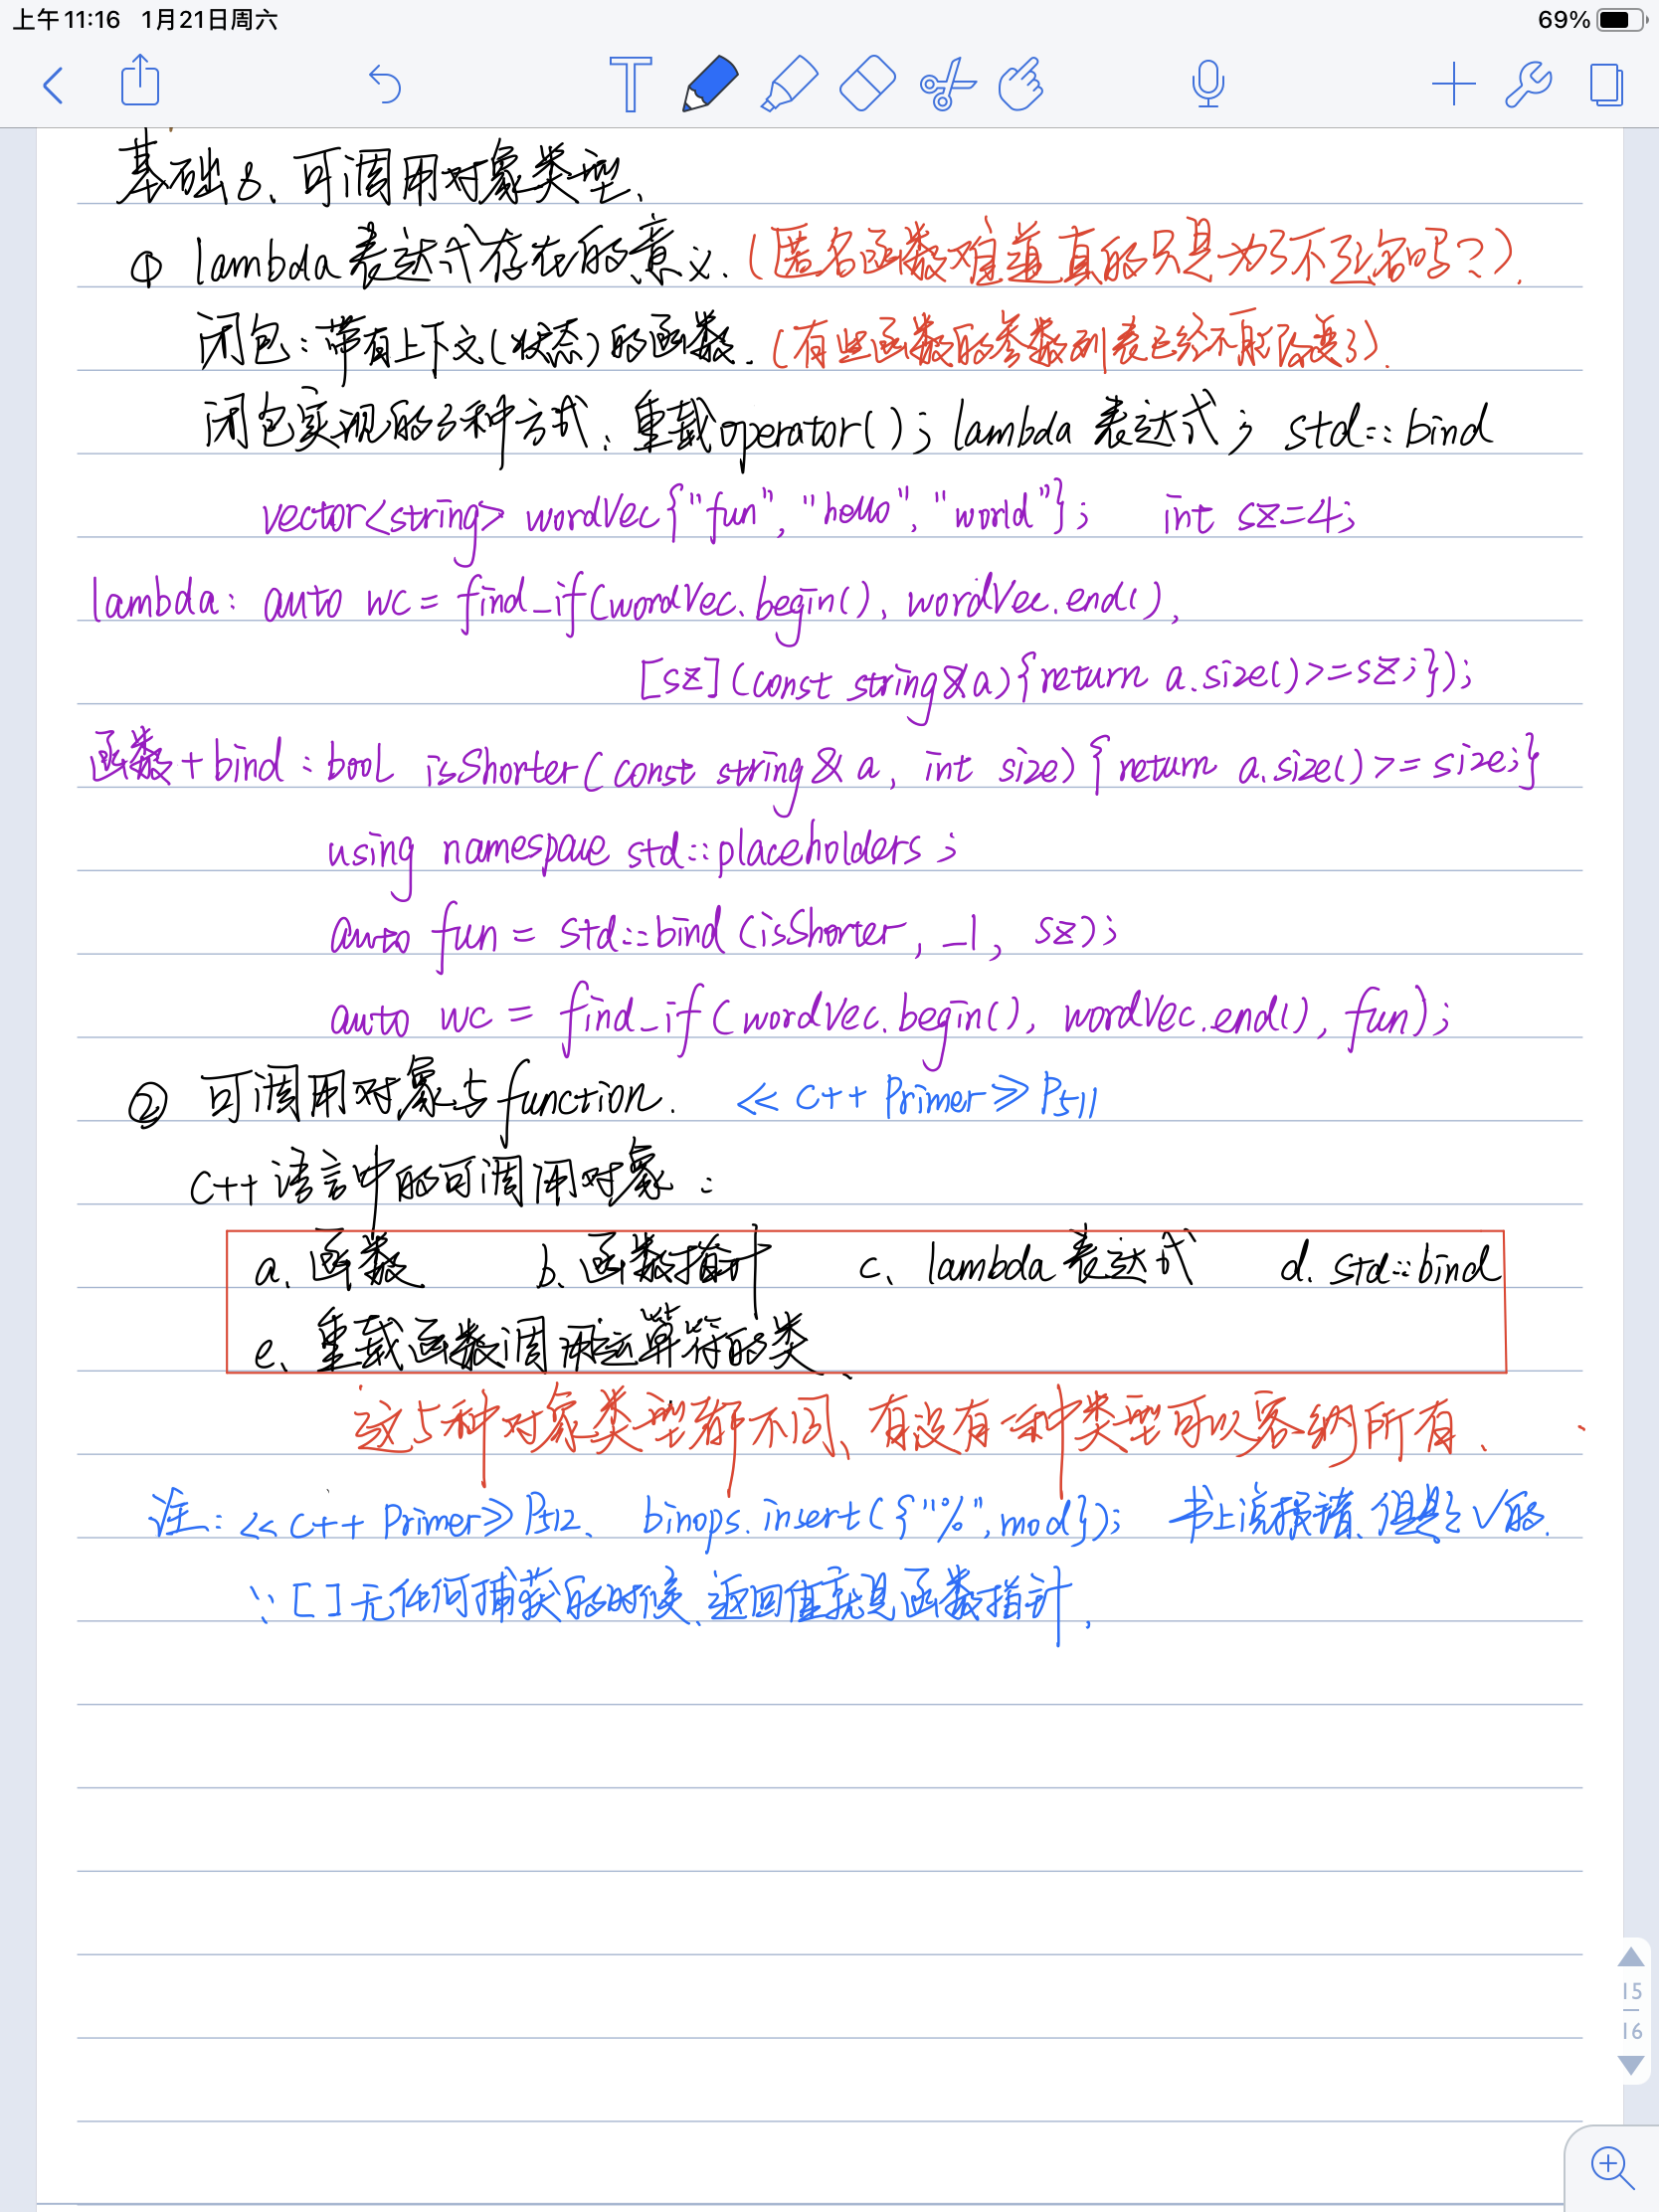 上午11:16 1月21日周六 69%
T
基础8、可调用对象类型、
① lambda表达式存在的意义.(匿名函数难道真的只是为了不写名吗?).
闭包:带有上下文(状态)的函数.(有些函数的参数列表已经不能改变了).
闭包实现的3种方式、重载operator(); lambda表达式; std::bind
vector<string> wordVec{"fun", "hello", "world"}; int sz=4;
lambda: auto wc = find_if(wordVec.begin(), wordVec.end(),
[sz](const string& a){return a.size()>=sz;});
函数+bind:bool isShorter(const string& a, int size){return a.size()>=size;}
using namespace std::placeholders;
auto fun = std::bind(isShorter, _1, sz);
auto wc = find_if(wordVec.begin(), wordVec.end(), fun);
② 可调用对象与function. <<C++ Primer>> P511
C++语言中的可调用对象:
a、函数 b、函数指针 c、lambda表达式 d. std::bind
e、重载函数调用运算符的类、
这5种对象类型都不同、有没有一种类型可以容纳所有.
注:<<C++ Primer>> P512、 binops.insert({"%",mod}); 书上说报错、但是√的.
∵[]无任何捕获的时候、返回值就是函数指针.
15
16